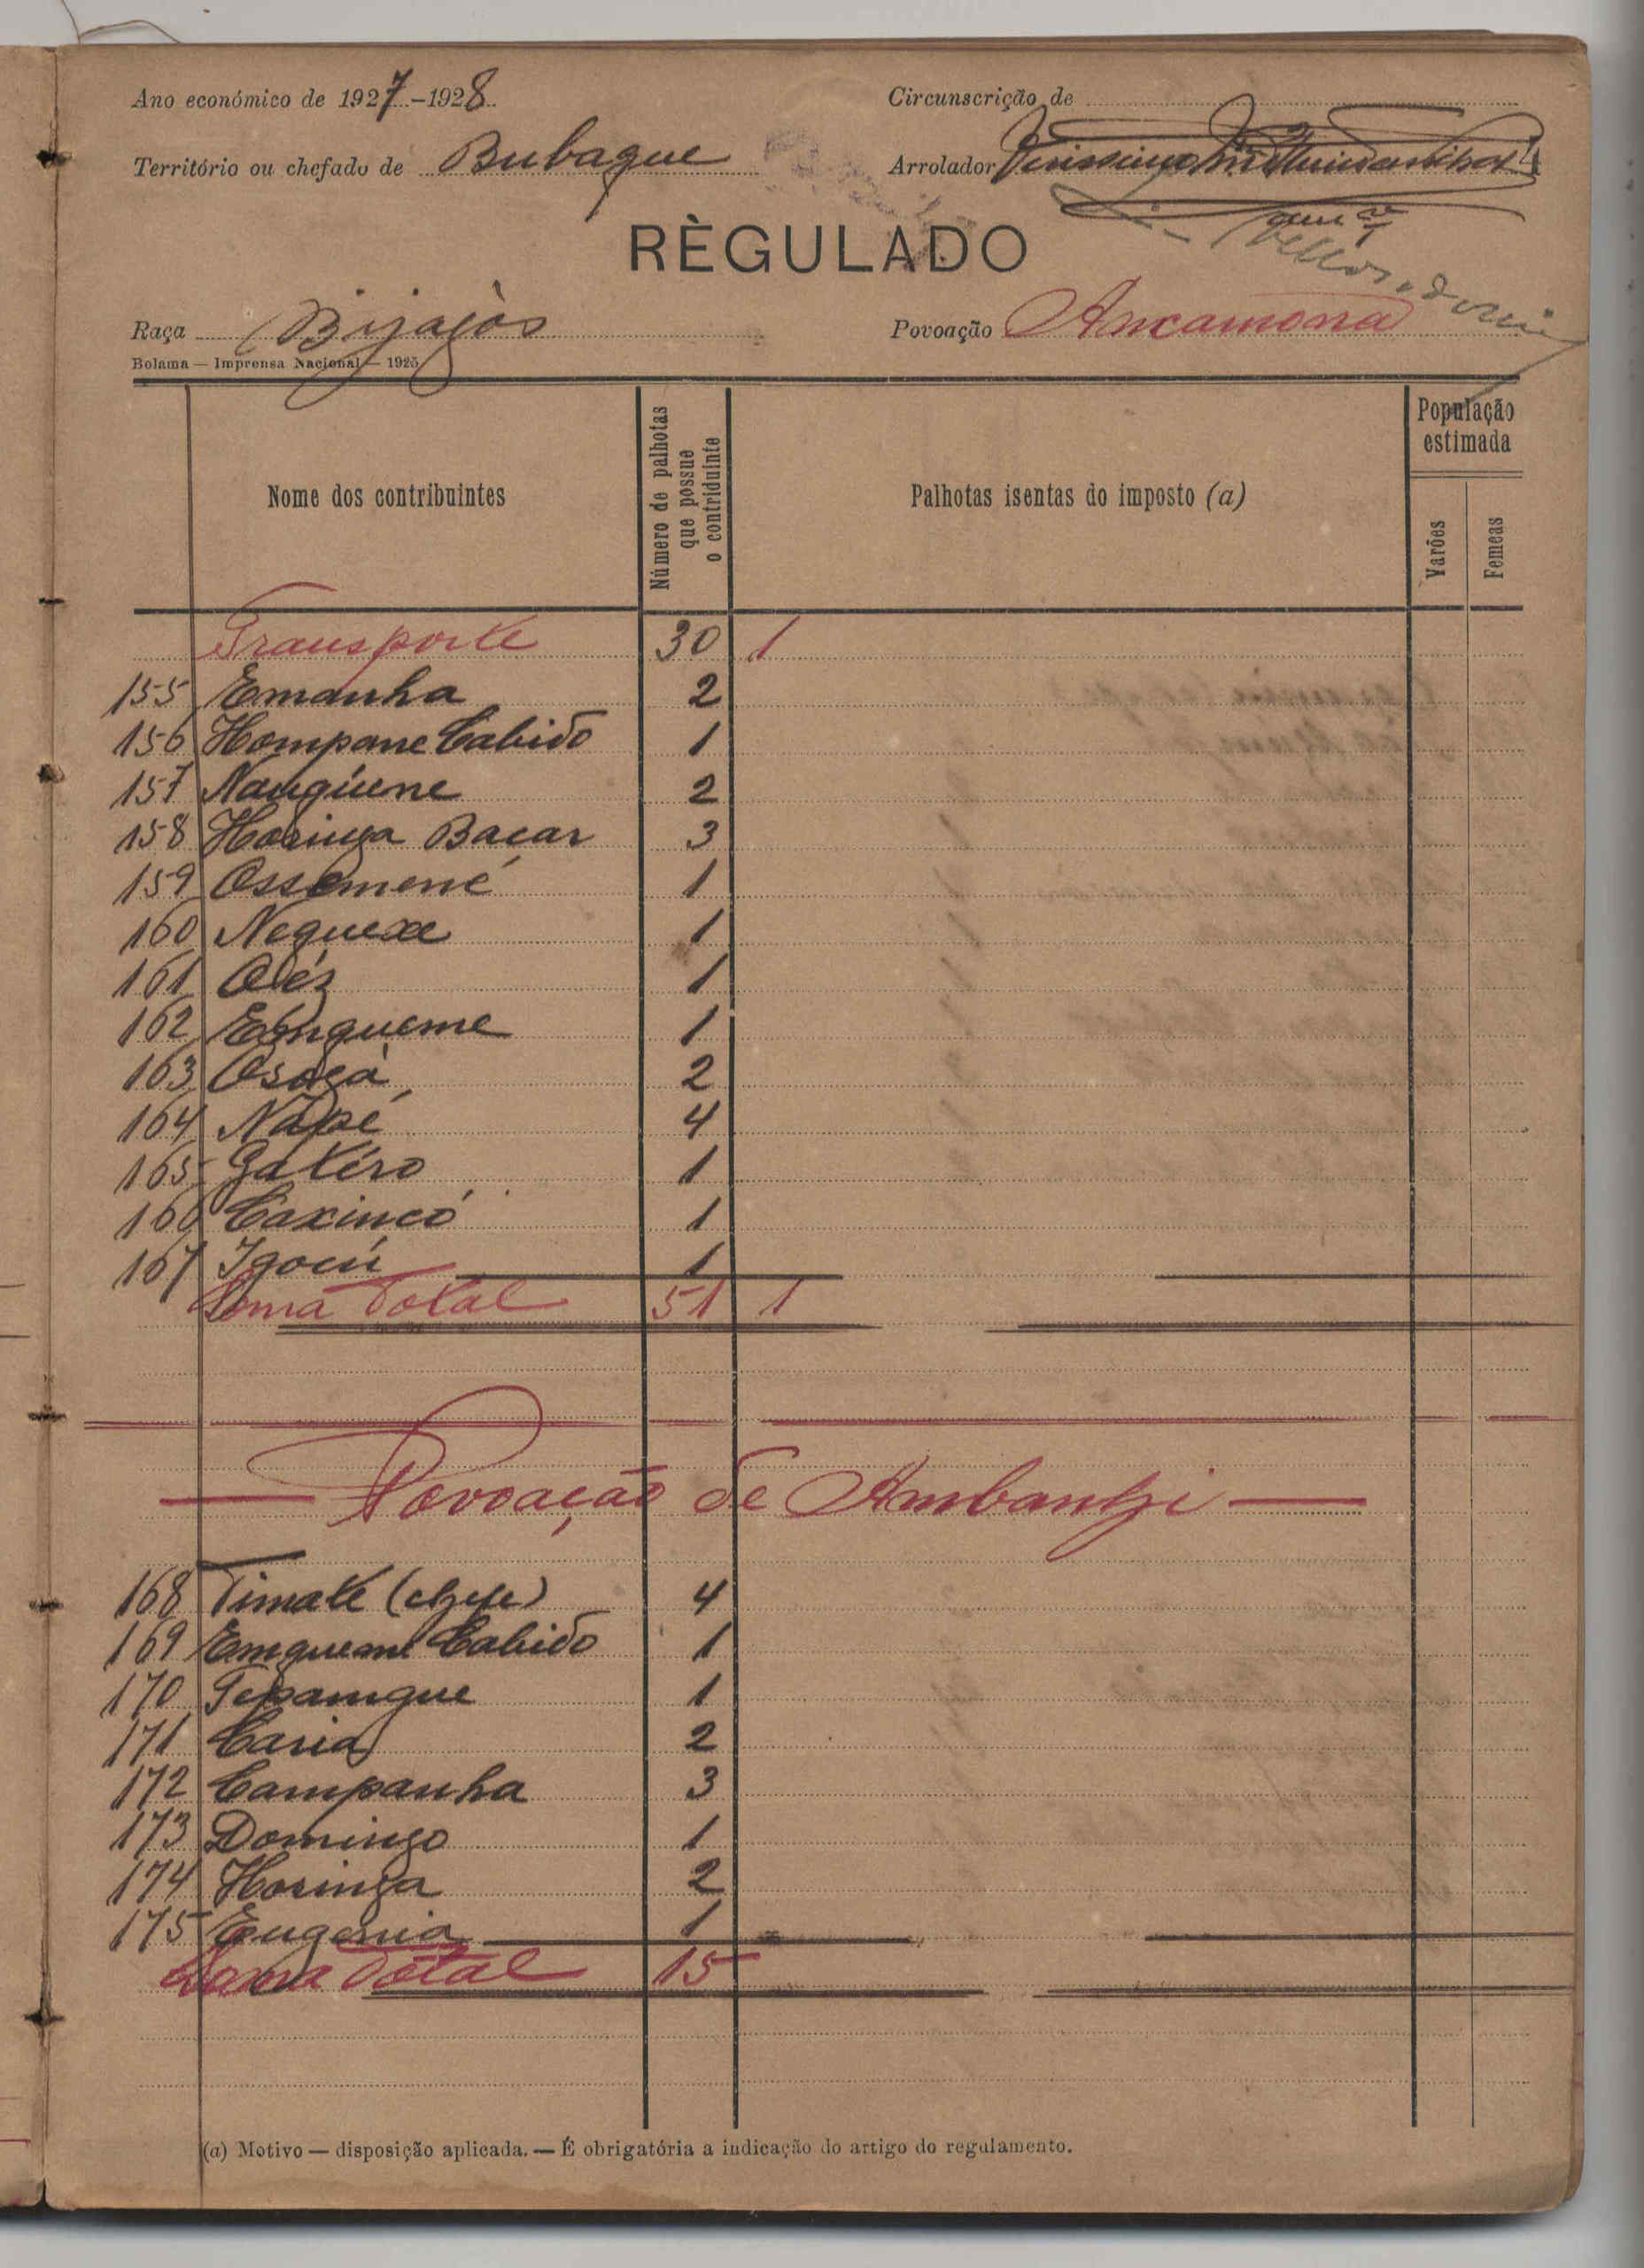 Ano económico de 1927-1928
Circunscrição de
Território ou chefado de Bubaque
Arrolador
RÈGULADO
Raça Bijagós
Povoação Ancamona
Bolama — Imprensa Nacional — 1925
Nome dos contribuintes
Número de palhotas que possue o contriduinte
Palhotas isentas do imposto (a)
População estimada
Varões
Femeas
Transporte 30 1
155 Emanha 2
156 Hompane Cabido 1
157 Nanguene 2
158 Horinga Bacar 3
159 Ossemené 1
160 Nequexe 1
161 1
162 2 1
163 2
164 Napé 4
165 Gatéro 1
166 Caxincó 1
167 Igocú 1
Soma Total 51 1
— Povoação de Ambanhi —
168 Timate (chefe) 4
169 Emqueme Cabido 1
170 Tepamgue 1
171 Caria 2
172 Campanha 3
173 Domingo 1
174 Horinga 2
175 Eugenia 1
Soma Total 15
(a) Motivo — disposição aplicada. — É obrigatória a indicação do artigo do regulamento.